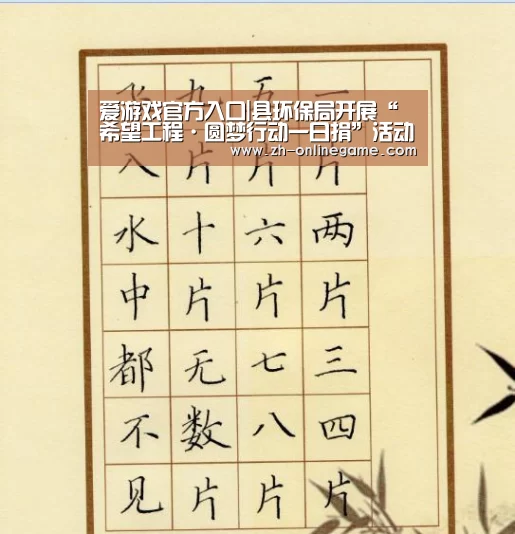 爱游戏官方入口|县环保局开展“
希望工程·圆梦行动一日捐”活动
www.zh-onlinegame.com
一片两片三四片
五片六片七八片
九片十片无数片
飞入水中都不见